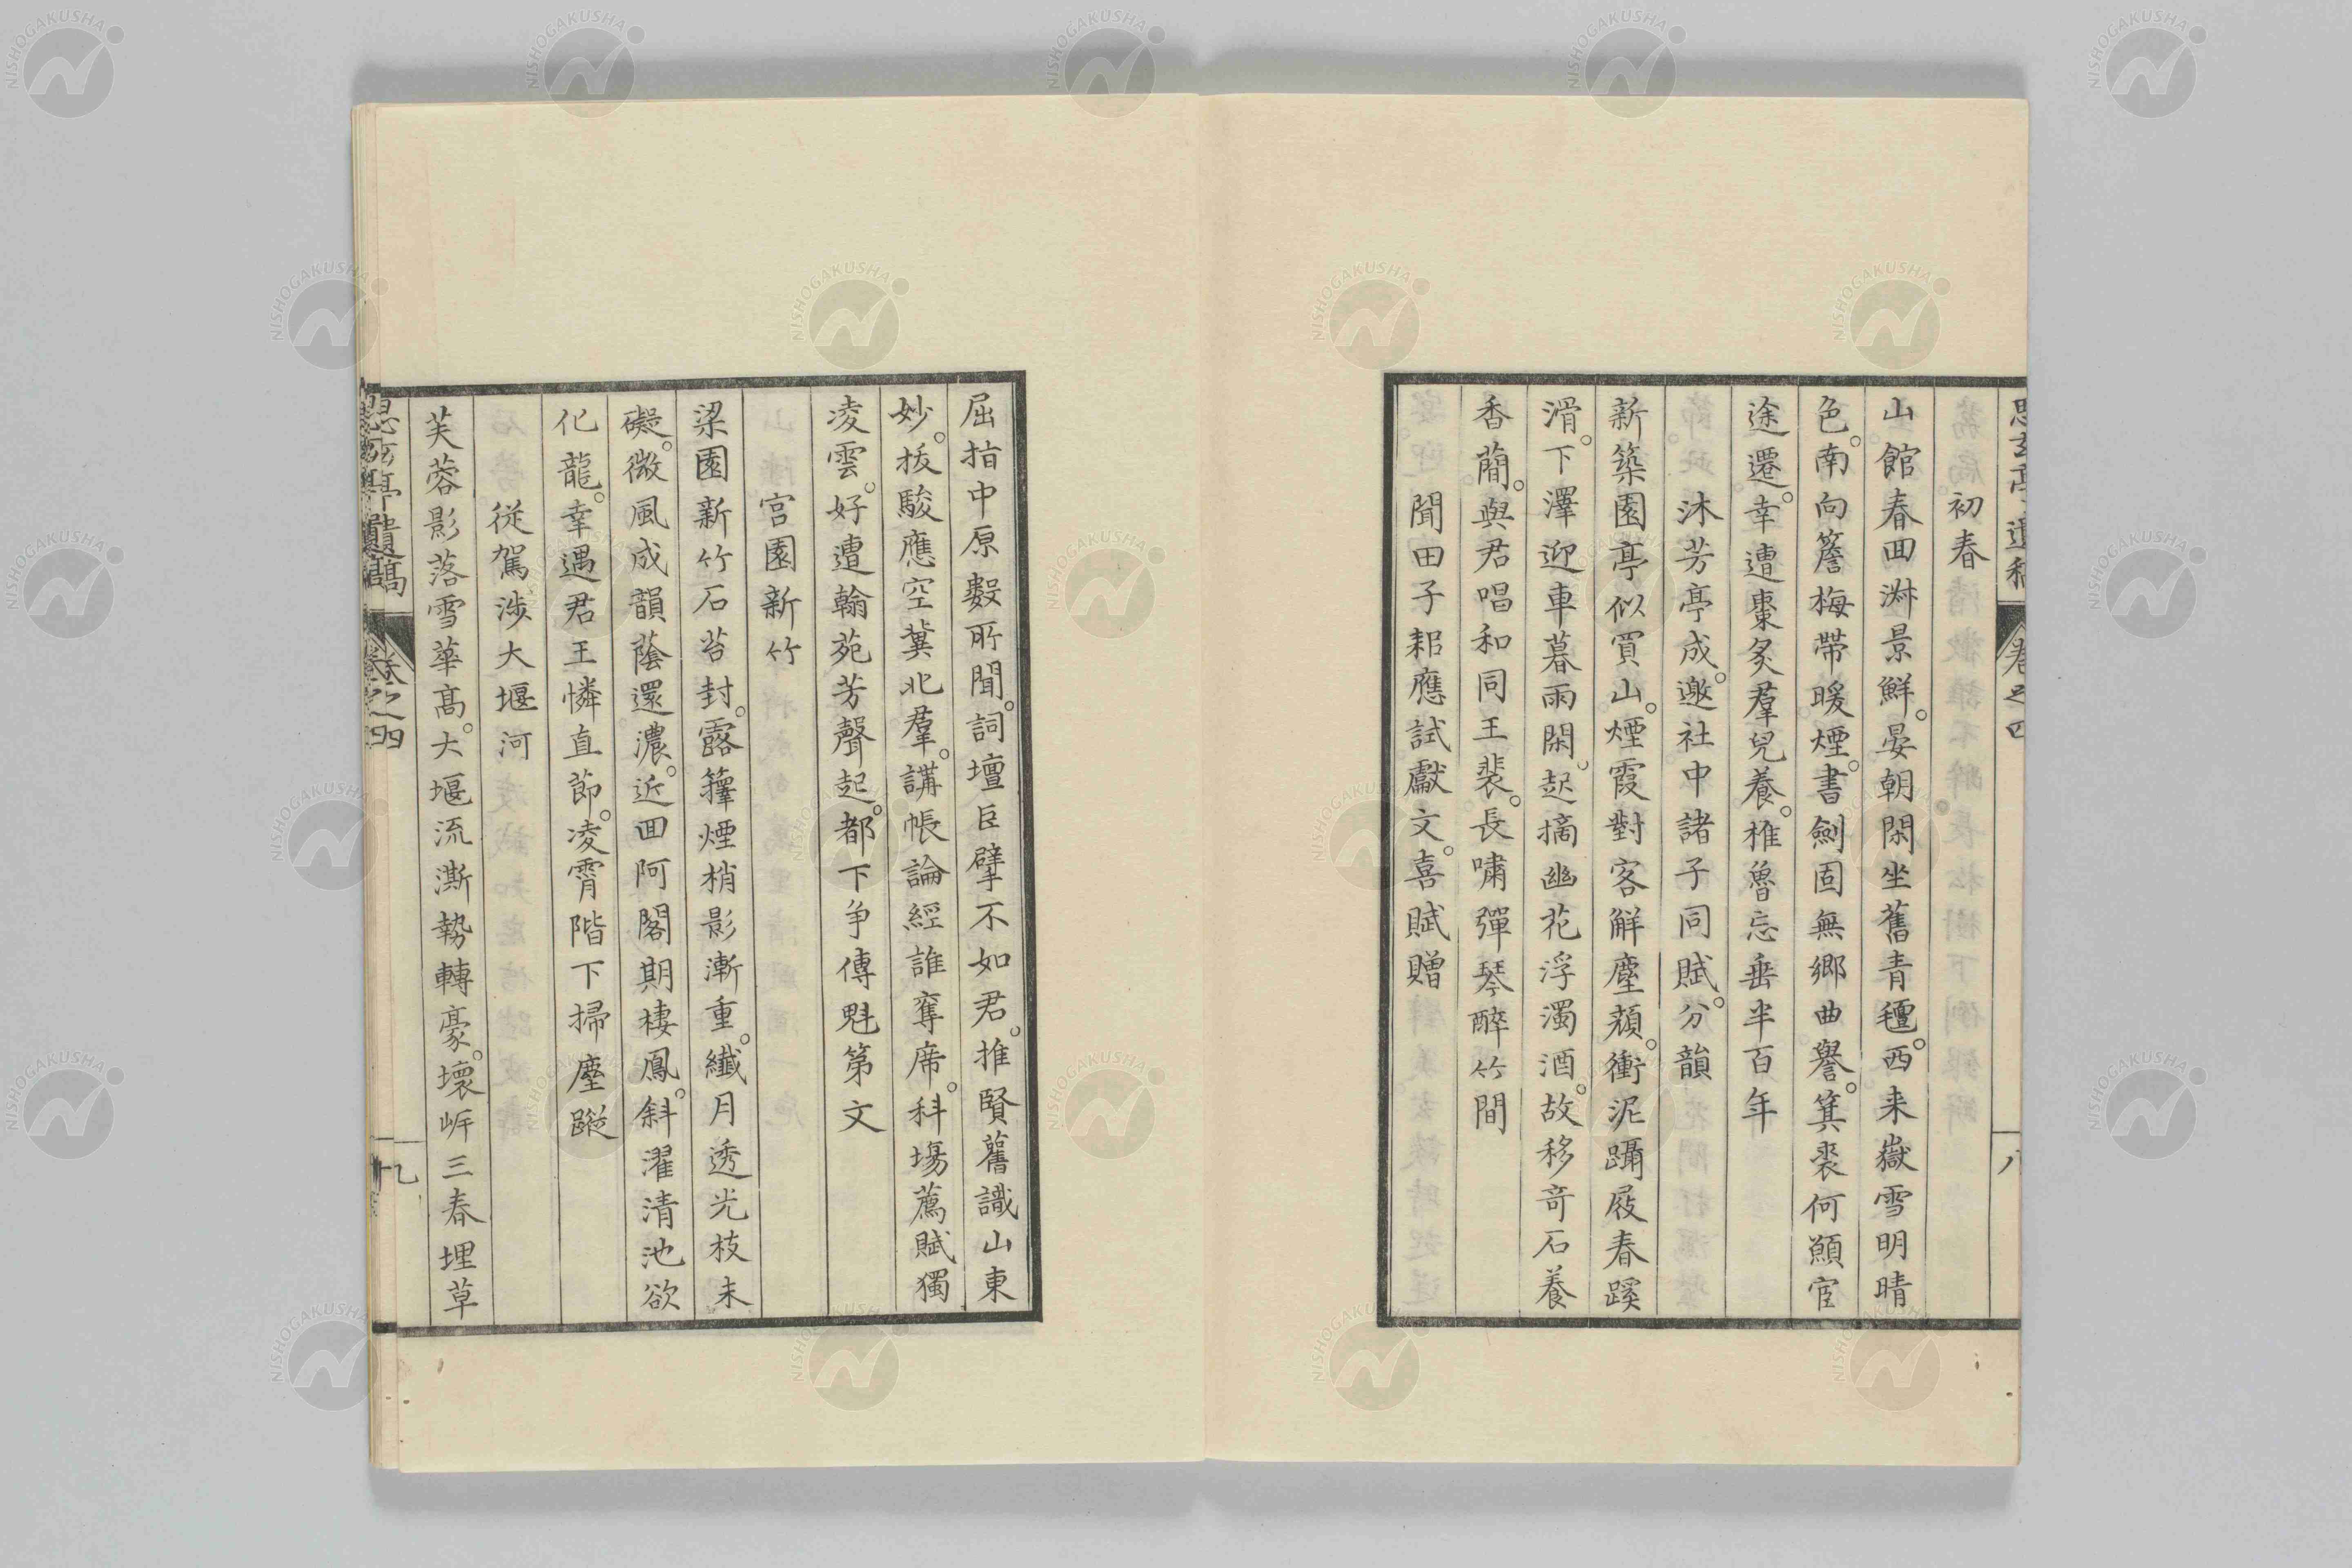 思玄亭遺稿 卷之四 八
初春
山館春回淑景鮮。晏朝閑坐舊青氈。西来嶽雪明晴
色。南向簷梅帶暖煙。書劍固無鄉曲譽。箕裘何願宦
途遷。幸遭棗炙羣兒養。椎魯忘垂半百年
沐芳亭成。邀社中諸子同賦。分韻
新築園亭似買山。煙霞對客解塵顔。衝泥躡屐春蹊
滑。下澤迎車暮雨閑。起摘幽花浮濁酒。故移奇石養
香蘭。與君唱和同王裴。長嘯彈琴醉竹間
聞田子耜應試獻文。喜賦贈
屈指中原數所聞。詞壇巨擘不如君。推賢舊識山東
妙。拔駿應空冀北羣。講帳論經誰奪席。科場薦賦獨
凌雲。好遭翰苑芳聲起。都下争傳魁第文
宮園新竹
梁園新竹石苔封。露籜煙梢影漸重。纖月透光枝未
礙。微風成韻蔭還濃。近回阿閣期棲鳳。斜濯清池欲
化龍。幸遇君王憐直節。凌霄階下掃塵蹤
從駕涉大堰河
芙蓉影落雪華高。大堰流澌勢轉豪。壞岸三春埋草
思玄亭遺稿 卷之四 九
NISHOGAKUSHA